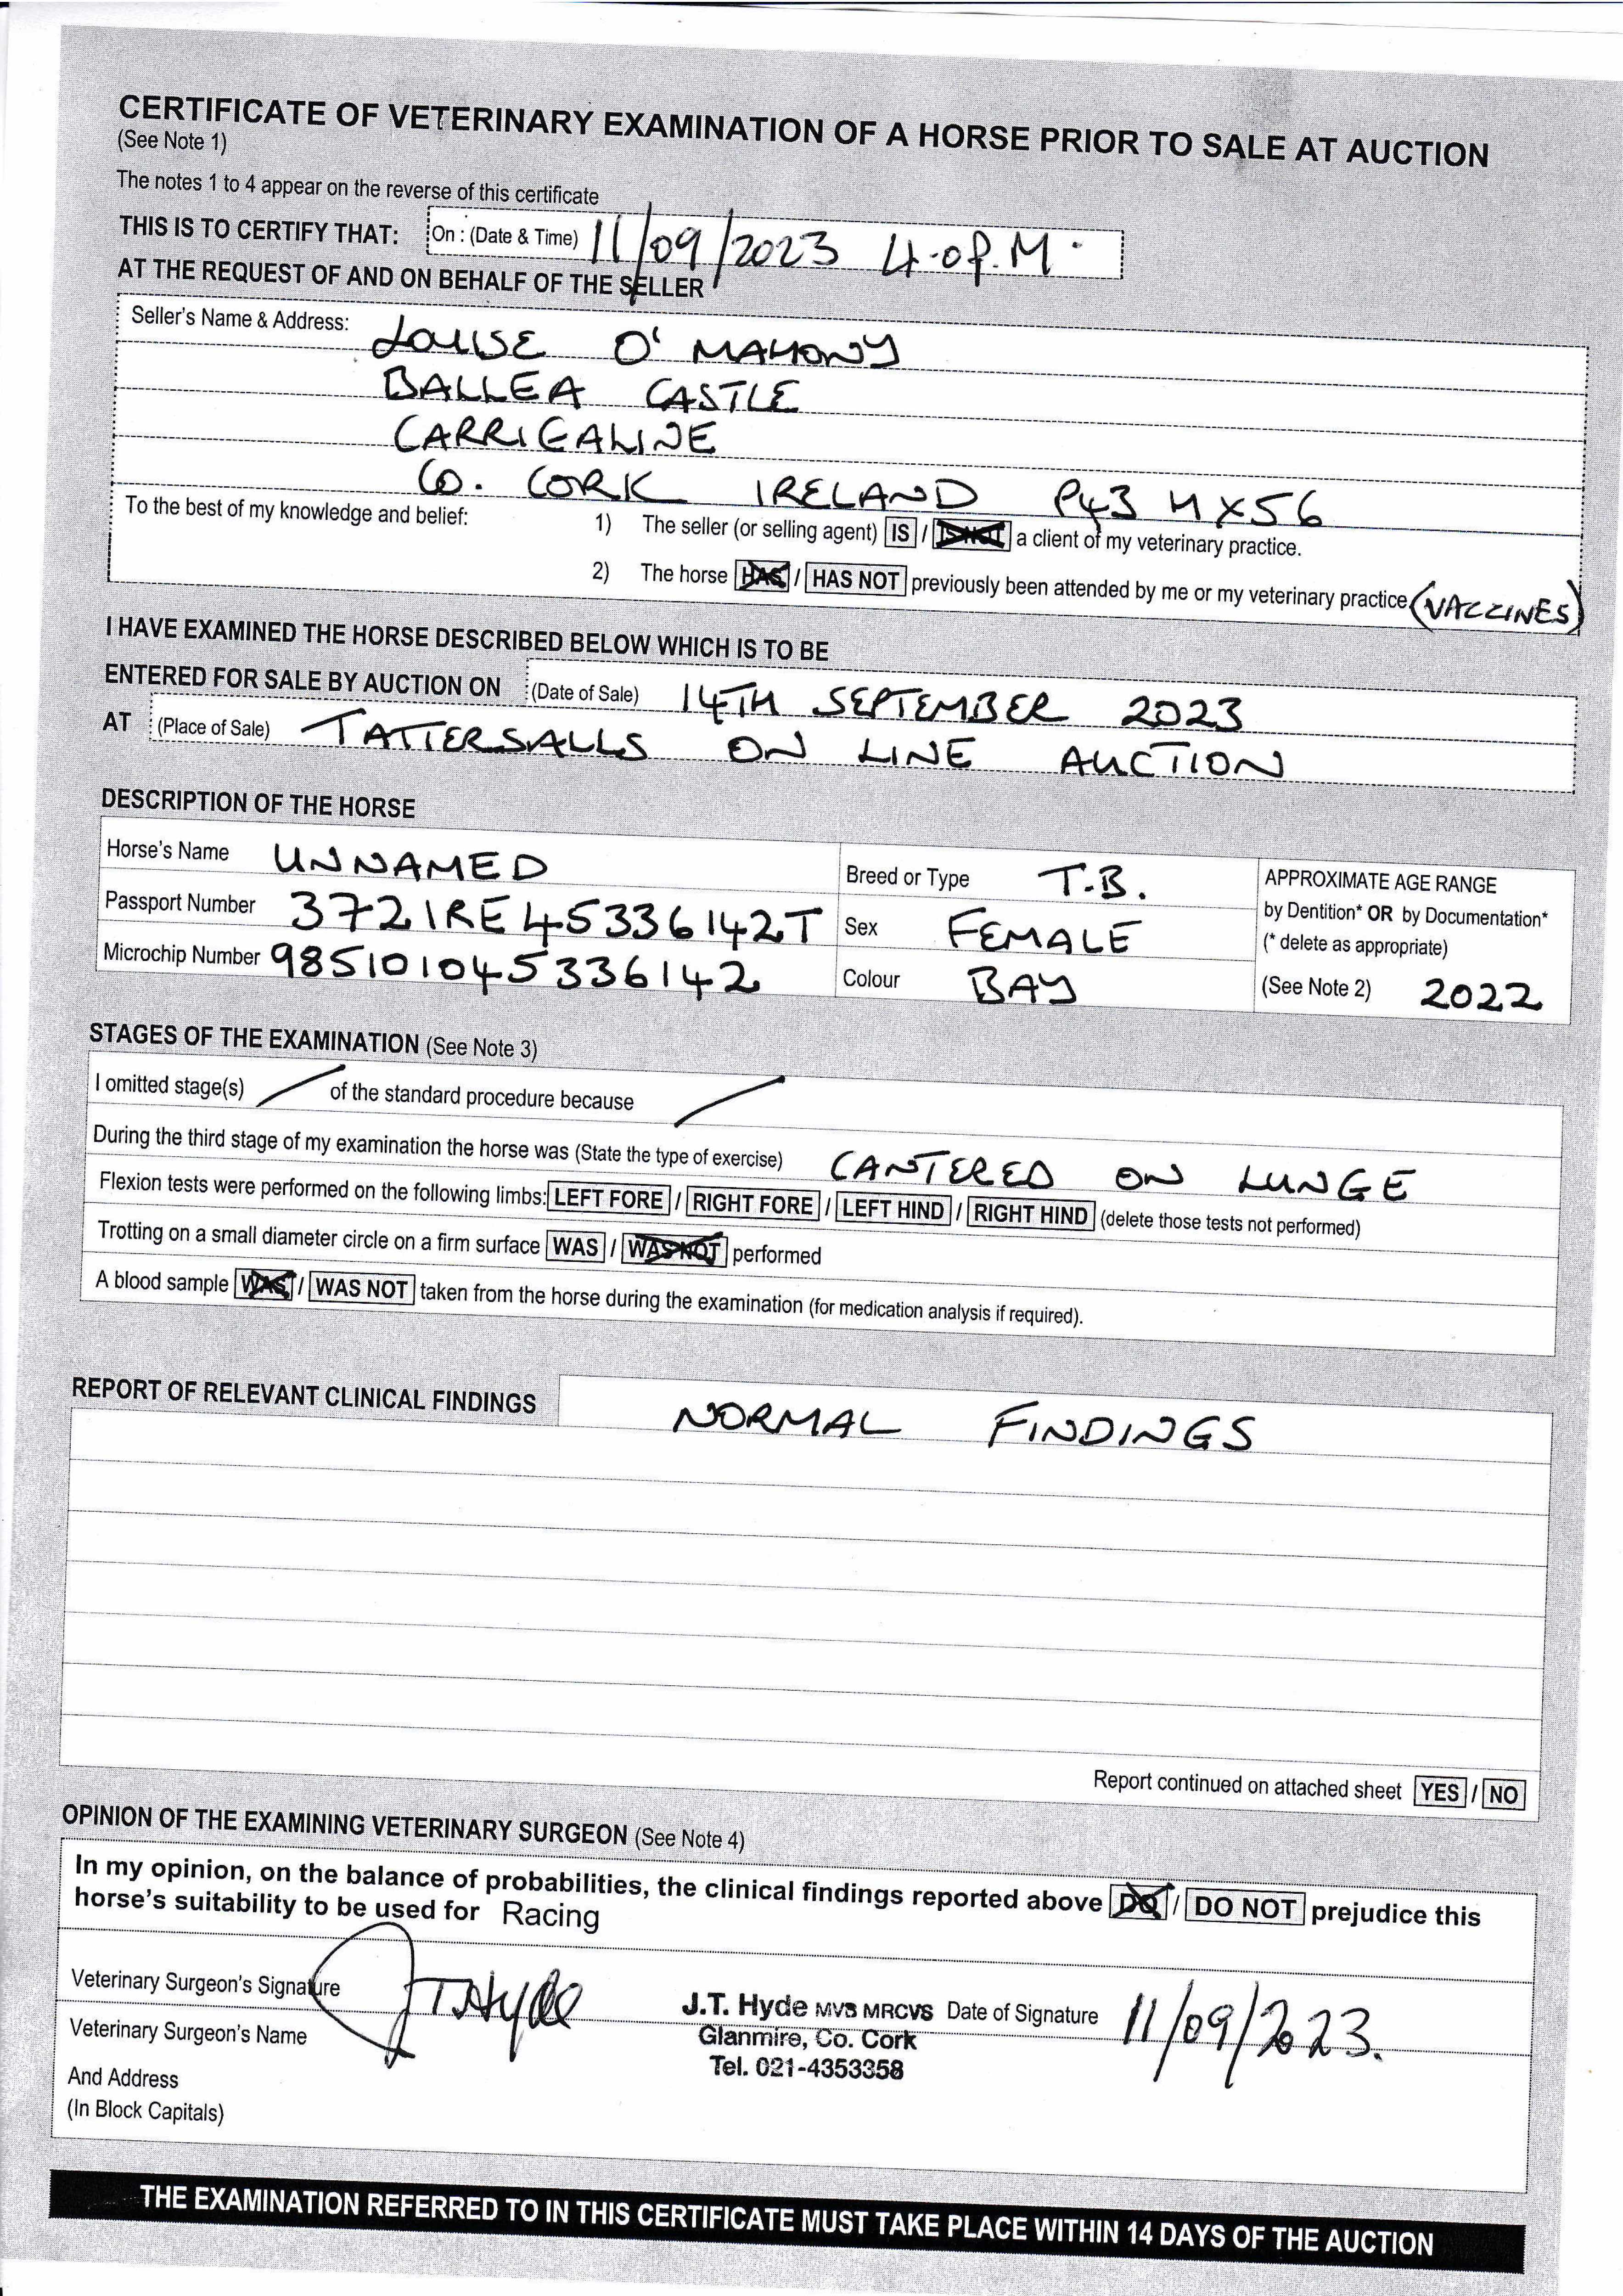 CERTIFICATE OF VETERINARY EXAMINATION OF A HORSE PRIOR TO SALE AT AUCTION
(See Note 1)
The notes 1 to 4 appear on the reverse of this certificate
THIS IS TO CERTIFY THAT: On : (Date & Time) 11/09/2023 4.0P.M.
AT THE REQUEST OF AND ON BEHALF OF THE SELLER
Seller's Name & Address: LOUISE O'MAHONY
BALLEA CASTLE
CARRIGALINE
CO. CORK IRELAND P43 HX56
To the best of my knowledge and belief: 1) The seller (or selling agent) IS / IS NOT a client of my veterinary practice.
2) The horse HAS / HAS NOT previously been attended by me or my veterinary practice (VACCINES)
I HAVE EXAMINED THE HORSE DESCRIBED BELOW WHICH IS TO BE
ENTERED FOR SALE BY AUCTION ON (Date of Sale) 14TH SEPTEMBER 2023
AT (Place of Sale) TATTERSALLS ON LINE AUCTION
DESCRIPTION OF THE HORSE
Horse's Name UNNAMED Breed or Type T.B. APPROXIMATE AGE RANGE
Passport Number 372IRE45336142T Sex FEMALE by Dentition* OR by Documentation*
(* delete as appropriate)
Microchip Number 985101045336142 Colour BAY (See Note 2) 2022
STAGES OF THE EXAMINATION (See Note 3)
I omitted stage(s) / of the standard procedure because /
During the third stage of my examination the horse was (State the type of exercise) CANTERED ON LUNGE
Flexion tests were performed on the following limbs: LEFT FORE / RIGHT FORE / LEFT HIND / RIGHT HIND (delete those tests not performed)
Trotting on a small diameter circle on a firm surface WAS / WAS NOT performed
A blood sample WAS / WAS NOT taken from the horse during the examination (for medication analysis if required).
REPORT OF RELEVANT CLINICAL FINDINGS NORMAL FINDINGS
Report continued on attached sheet YES / NO
OPINION OF THE EXAMINING VETERINARY SURGEON (See Note 4)
In my opinion, on the balance of probabilities, the clinical findings reported above DO / DO NOT prejudice this
horse's suitability to be used for Racing
Veterinary Surgeon's Signature JTHyde J.T. Hyde MVB MRCVS Date of Signature 11/09/2023.
Veterinary Surgeon's Name Glanmire, Co. Cork
And Address Tel. 021-4353358
(In Block Capitals)
THE EXAMINATION REFERRED TO IN THIS CERTIFICATE MUST TAKE PLACE WITHIN 14 DAYS OF THE AUCTION